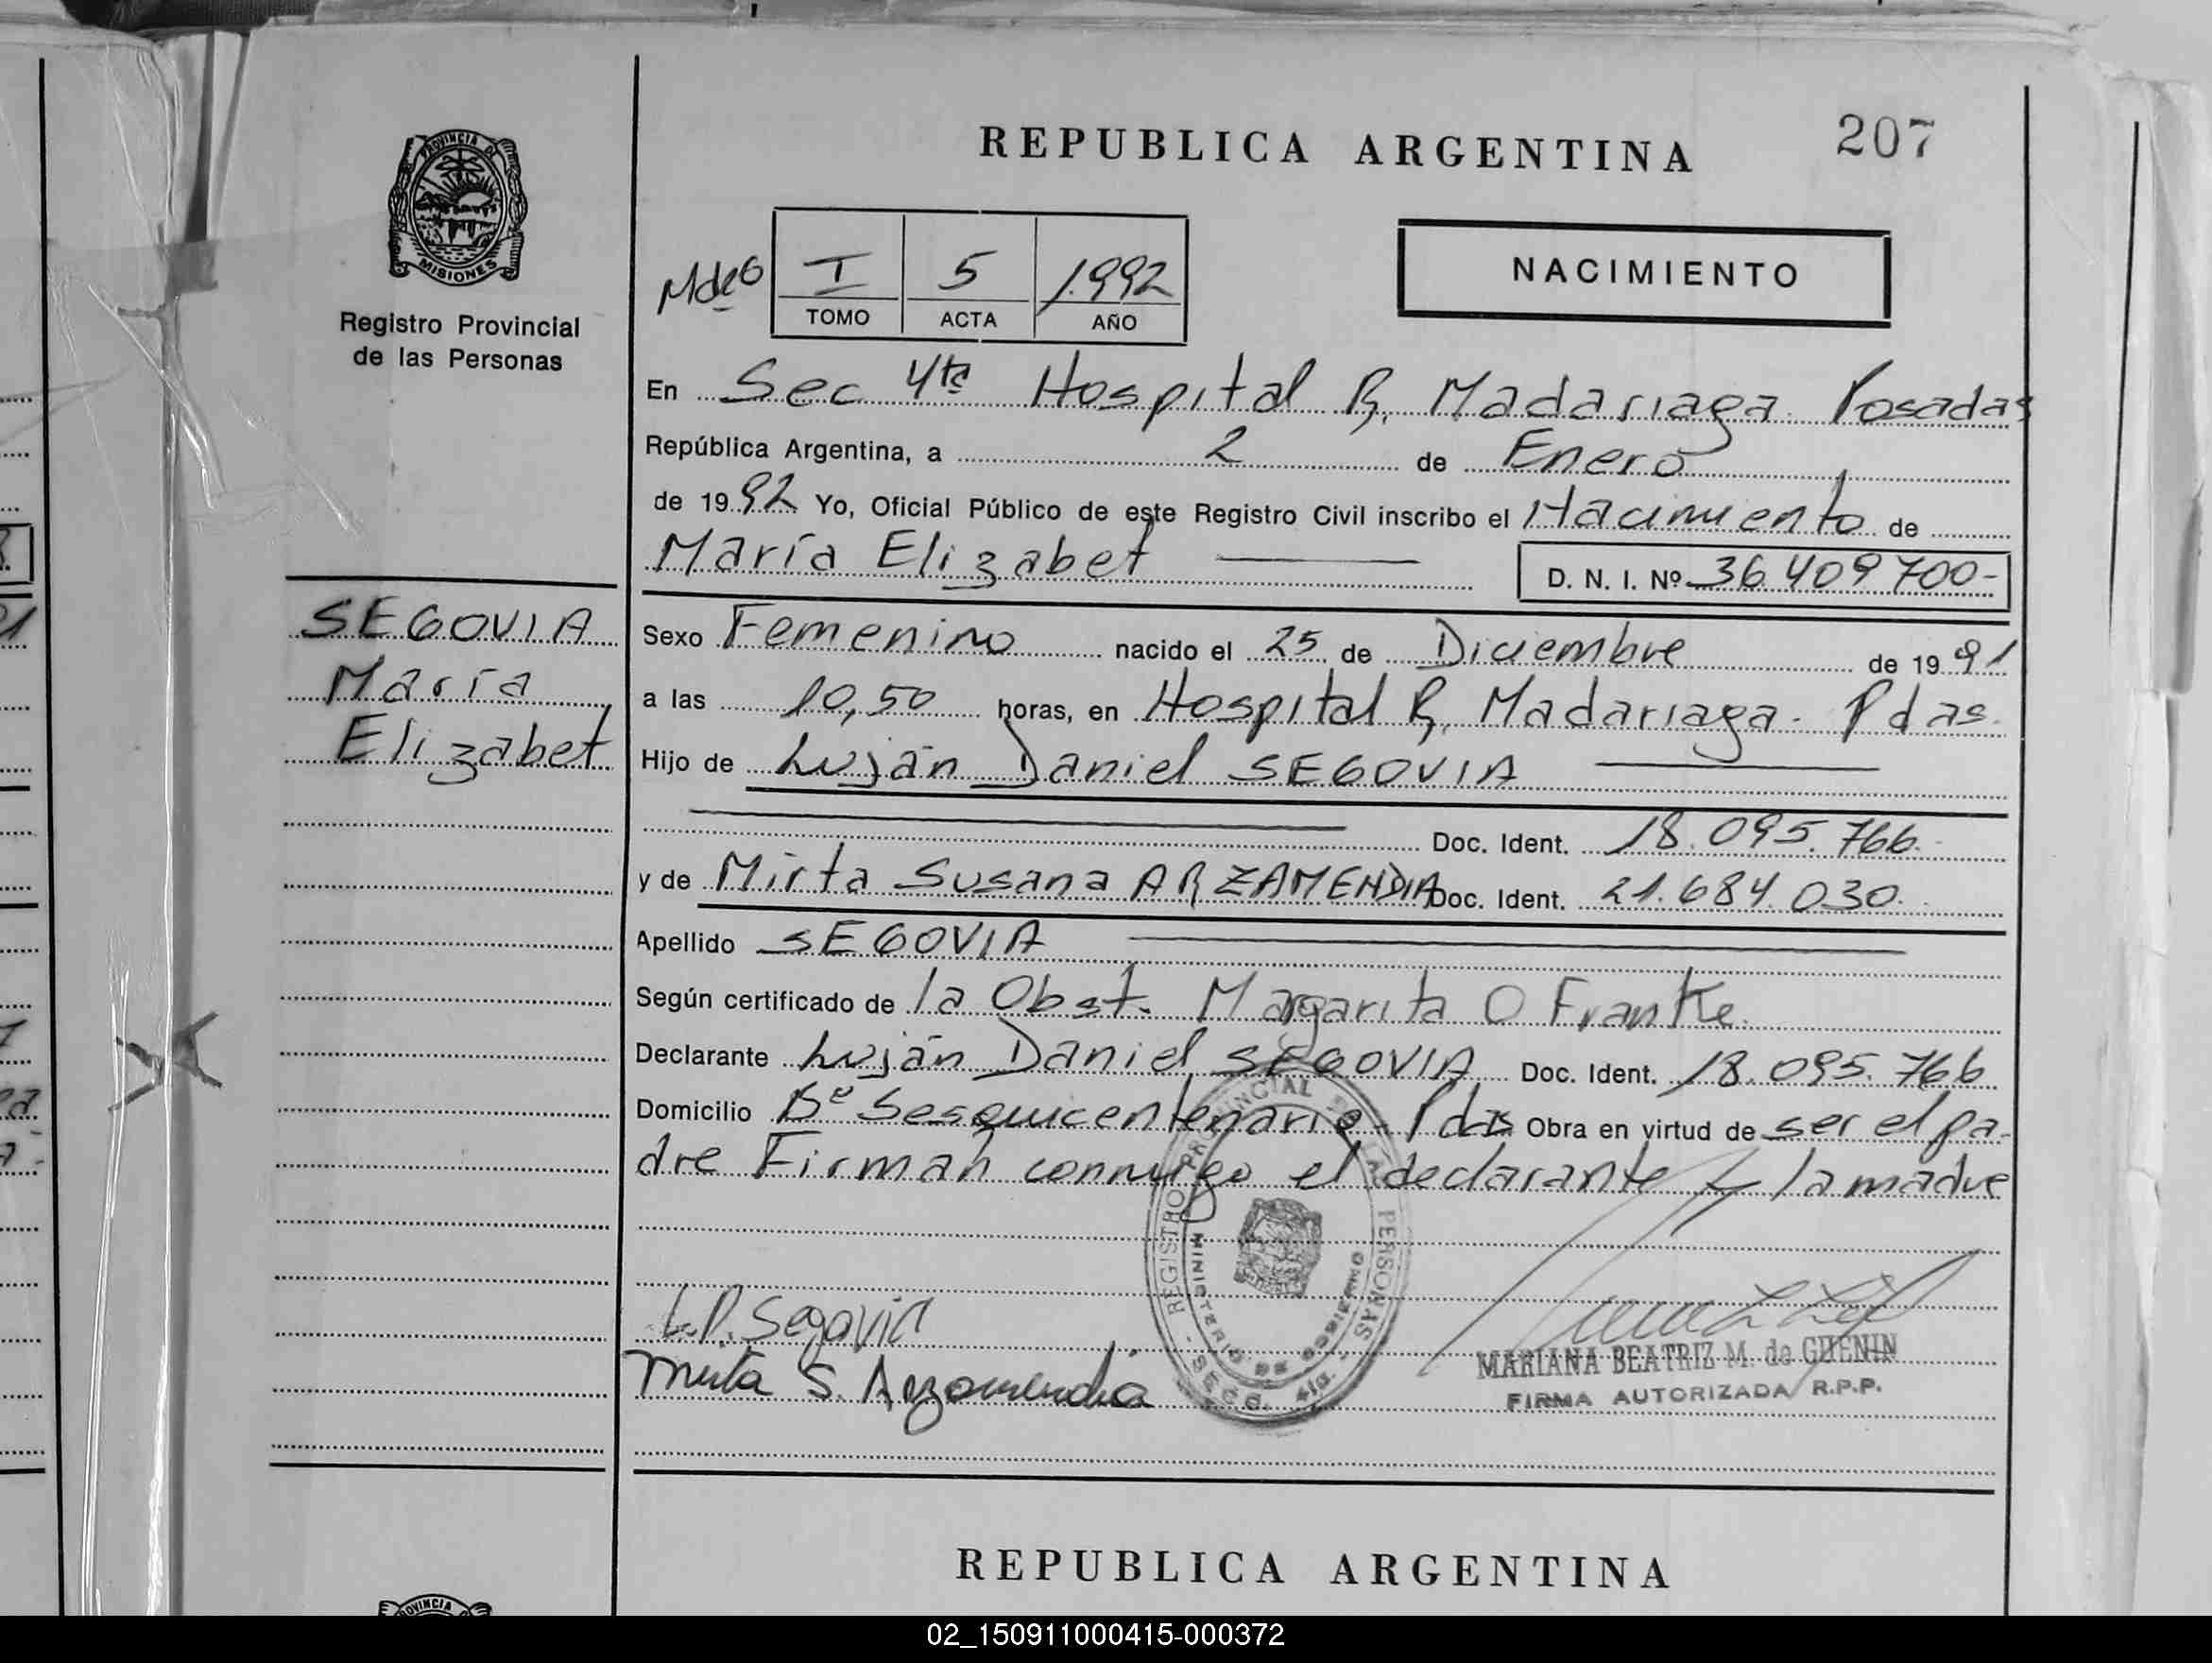 REPUBLICA ARGENTINA
207
PROVINCIA DE
MISIONES
Registro Provincial
de las Personas
I 5 1992
TOMO ACTA AÑO
NACIMIENTO
En Sec 4ta Hospital R. Madariaga Posadas
República Argentina, a 2 de Enero
de 1992 Yo, Oficial Público de este Registro Civil inscribo el Nacimiento de
María Elizabet D. N. I. Nº 36.409700-
SEGOVIA
María
Elizabet
Sexo Femenino nacido el 25 de Diciembre de 1991
a las 10,50 horas, en Hospital R. Madariaga. Pdas.
Hijo de Luján Daniel SEGOVIA
Doc. Ident. 18.095.766.
y de Mirta Susana ARZAMENDIA Doc. Ident. 21.684.030.
Apellido SEGOVIA
Según certificado de la Obst. Margarita O Franke.
Declarante Luján Daniel SEGOVIA Doc. Ident. 18.095.766
Domicilio Bº Sesquicentenario - Pdas Obra en virtud de ser el pa-
dre Firman conmigo el declarante y la madre
REGISTRO PROVINCIAL DE LAS PERSONAS - SECC. 4ta. -
MINISTERIO DE GOBIERNO
L.D. Segovia
Mirta S. Arzamendia
MARIANA BEATRIZ M. de GUENIN
FIRMA AUTORIZADA R.P.P.
REPUBLICA ARGENTINA
PROVINCIA
02_150911000415-000372